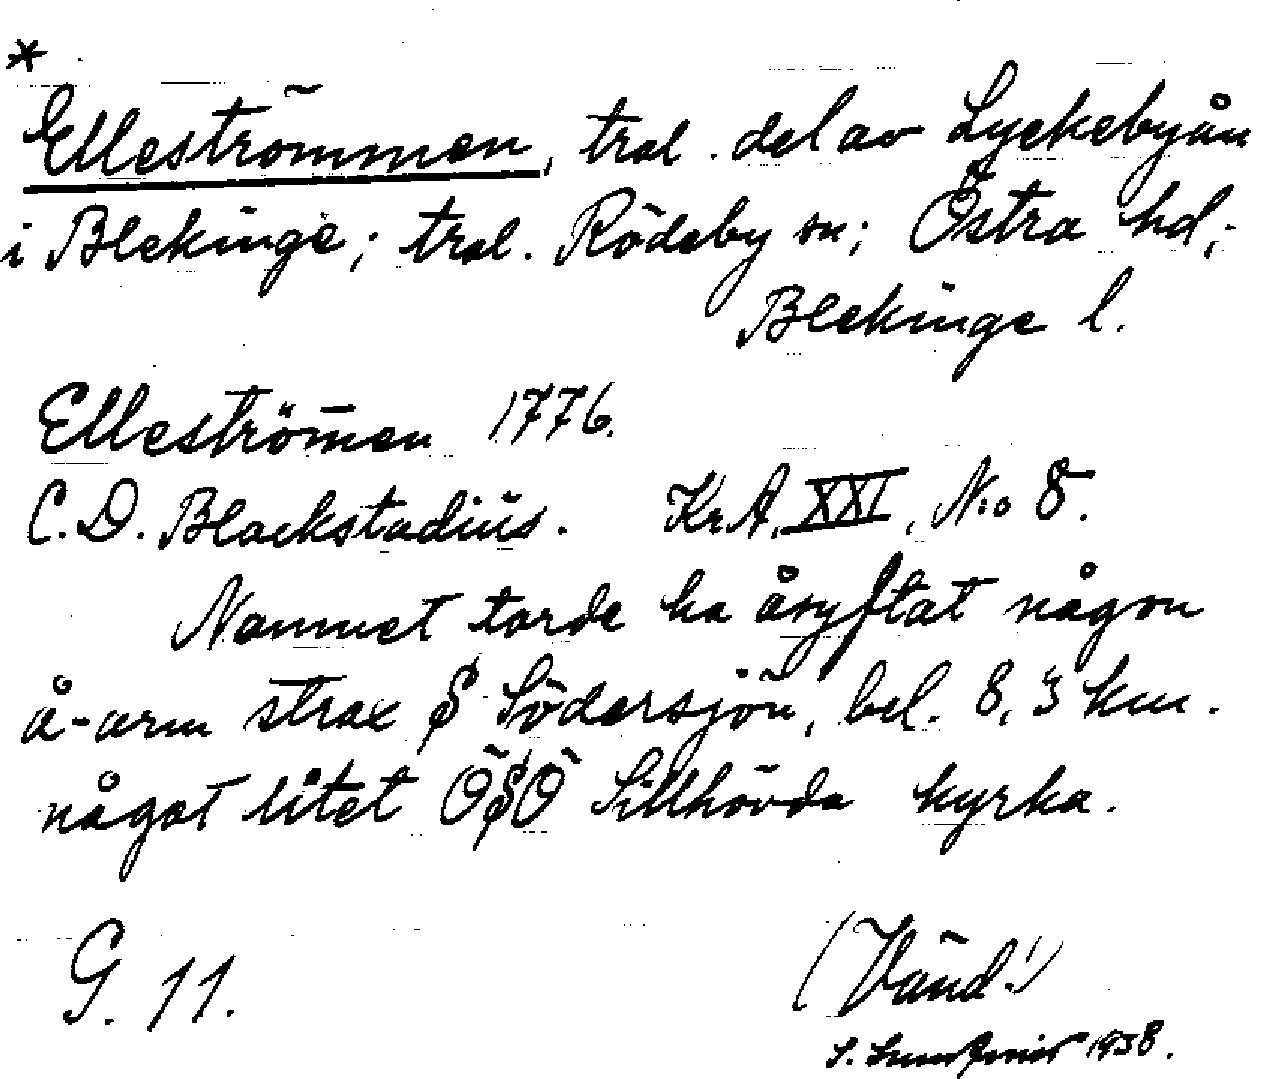 *
Elleströmmen, trol. del av Lyckebyån
i Blekinge; trol. Rödeby sn; Östra hd;
Blekinge l.
Elleström̄en 1776.
C.D. Blackstadius. KrA, XXI, N:o 8.
Namnet torde ha åsyftat någon
å-arm strax S Södersjön, bel. 8,3 km.
något litet ÖSÖ Sillhövda kyrka.
G. 11.
(Vänd!)
S. 1938.